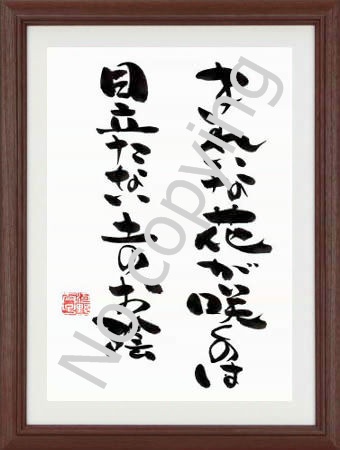 きれいな花が咲くのは
目立たない土のお陰
No copying